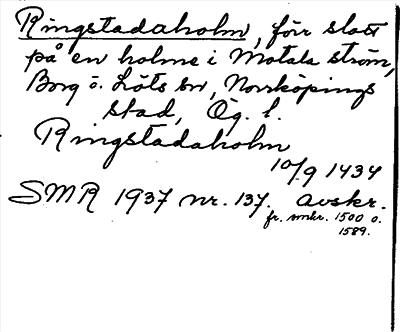 Ringstadaholm, förr slott
på en holme i Motala ström,
Borg o. Löts sn, Norrköpings
stad, Ög. l.
Ringstadaholm
10/9 1434
SMR 1937 nr. 137. avskr.
fr. omkr. 1500 o.
1589.